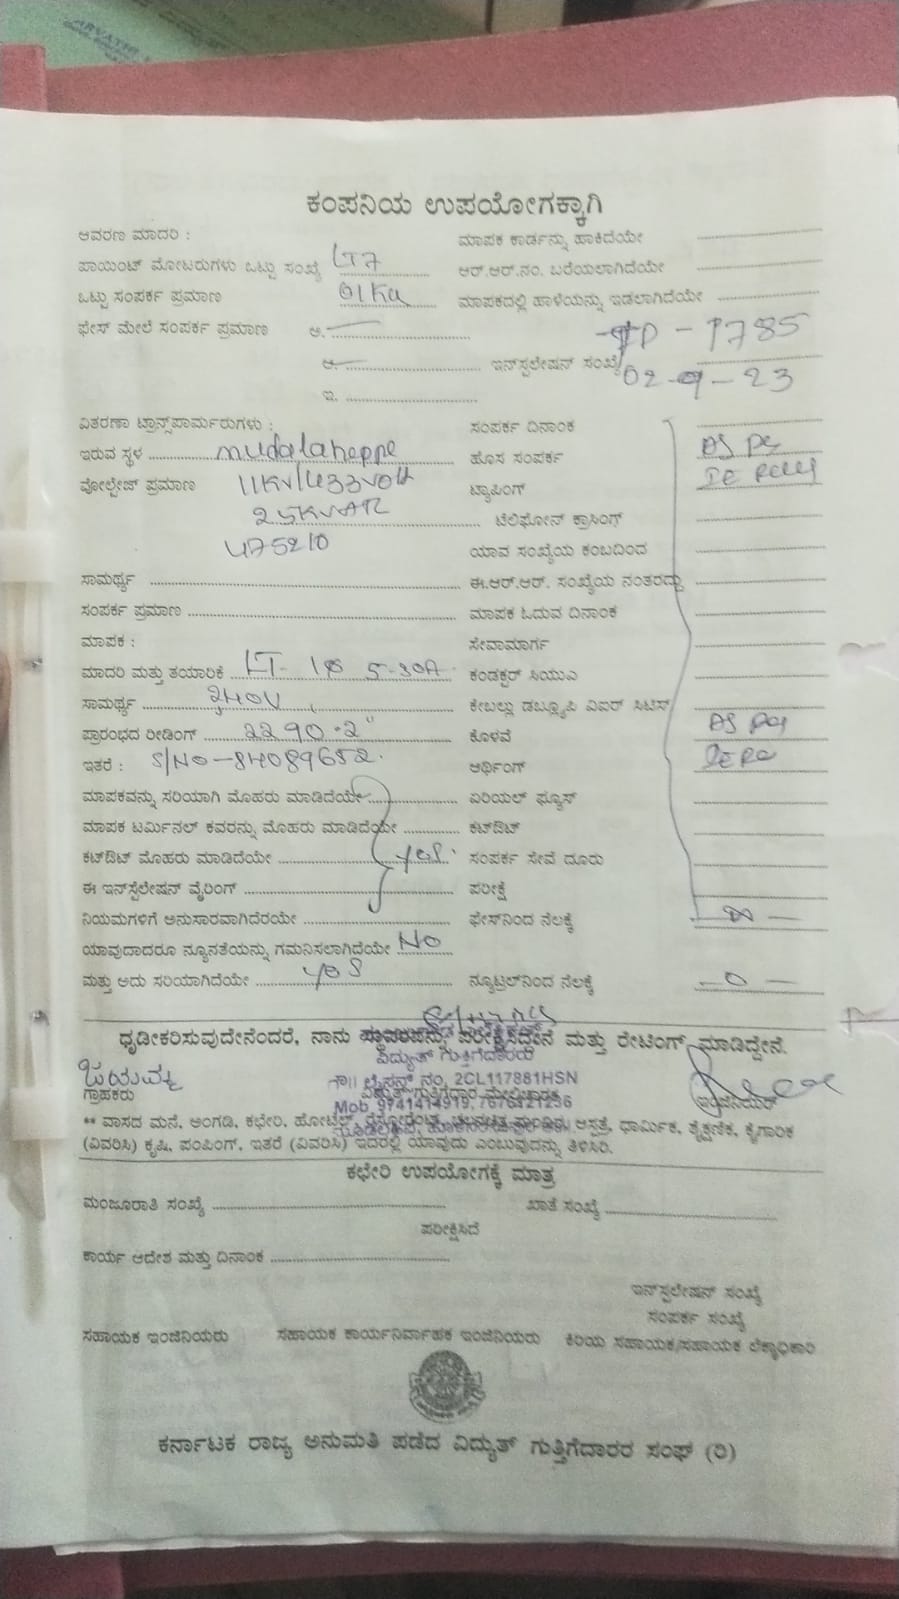 ಕಂಪನಿಯ ಉಪಯೋಗಕ್ಕಾಗಿ
ಆವರಣ ಮಾದರಿ : ಮಾಪಕ ಕಾರ್ಡನ್ನು ಹಾಕಿದೆಯೇ
ಪಾಯಿಂಟ್ ಮೋಟರುಗಳು ಒಟ್ಟು ಸಂಖ್ಯೆ LT7 ಆರ್.ಆರ್.ನಂ. ಬರೆಯಲಾಗಿದೆಯೇ
ಒಟ್ಟು ಸಂಪರ್ಕ ಪ್ರಮಾಣ 01Kw ಮಾಪಕದಲ್ಲಿ ಹಾಳೆಯನ್ನು ಇಡಲಾಗಿದೆಯೇ
ಫೇಸ್ ಮೇಲೆ ಸಂಪರ್ಕ ಪ್ರಮಾಣ ಅ. - 1785
ಆ. ಇನ್‌ಸ್ಟಲೇಷನ್ ಸಂಖ್ಯೆ 02-9-23
ಇ.
ವಿತರಣಾ ಟ್ರಾನ್ಸ್‌ಪಾರ್ಮರುಗಳು : ಸಂಪರ್ಕ ದಿನಾಂಕ
ಇರುವ ಸ್ಥಳ mudalaheppe ಹೊಸ ಸಂಪರ್ಕ AS PE
ವೋಲ್ಟೇಜ್ ಪ್ರಮಾಣ 11KV/433Volt ಟ್ಯಾಪಿಂಗ್
25KVAR ಟೆಲಿಫೋನ್ ಕ್ರಾಸಿಂಗ್
475210 ಯಾವ ಸಂಖ್ಯೆಯ ಕಂಬದಿಂದ
ಸಾಮರ್ಥ್ಯ ಈ.ಆರ್.ಆರ್. ಸಂಖ್ಯೆಯ ನಂತರದ್ದು
ಸಂಪರ್ಕ ಪ್ರಮಾಣ ಮಾಪಕ ಓದುವ ದಿನಾಂಕ
ಮಾಪಕ : ಸೇವಾಮಾರ್ಗ
ಮಾದರಿ ಮತ್ತು ತಯಾರಿಕೆ LT- 1φ 5-30A ಕಂಡಕ್ಟರ್ ಸಿಯುಎ
ಸಾಮರ್ಥ್ಯ 240V ಕೇಬಲ್ಲು ಡಬ್ಲ್ಯೂಪಿ ವಿಐರ್ ಸಿಟಿಸ್
ಪ್ರಾರಂಭದ ರೀಡಿಂಗ್ 2290.2 ಕೊಳವೆ
ಇತರೆ : S/NO-84089652. ಆರ್ಥಿಂಗ್
ಮಾಪಕವನ್ನು ಸರಿಯಾಗಿ ಮೊಹರು ಮಾಡಿದೆಯೇ ಏರಿಯಲ್ ಫ್ಯೂಸ್
ಮಾಪಕ ಟರ್ಮಿನಲ್ ಕವರನ್ನು ಮೊಹರು ಮಾಡಿದೆಯೇ ಕಟ್‌ಔಟ್
ಕಟ್‌ಔಟ್ ಮೊಹರು ಮಾಡಿದೆಯೇ yes. ಸಂಪರ್ಕ ಸೇವೆ ದೂರು
ಈ ಇನ್‌ಸ್ಟೆಲೇಷನ್ ವೈರಿಂಗ್ ಪರೀಕ್ಷೆ
ನಿಯಮಗಳಿಗೆ ಅನುಸಾರವಾಗಿದೆರಯೇ ಫೇಸ್‌ನಿಂದ ನೆಲಕ್ಕೆ
ಯಾವುದಾದರೂ ನ್ಯೂನತೆಯನ್ನು ಗಮನಿಸಲಾಗಿದೆಯೇ NO
ಮತ್ತು ಅದು ಸರಿಯಾಗಿದೆಯೇ yes ನ್ಯೂಟ್ರಲ್‌ನಿಂದ ನೆಲಕ್ಕೆ -0-
ಧೃಡೀಕರಿಸುವುದೇನೆಂದರೆ, ನಾನು ಸ್ಥಾವರವನ್ನು ಪರೀಕ್ಷಿಸಿದ್ದೇನೆ ಮತ್ತು ರೇಟಿಂಗ್ ಮಾಡಿದ್ದೇನೆ.
ವಿದ್ಯುತ್ ಗುತ್ತಿಗೆದಾರರು
ಜಯಮ್ಮ ಲೈಸನ್ಸ್ ನಂ. 2CL117881HSN
ಗ್ರಾಹಕರು ವಿದ್ಯುತ್ ಗುತ್ತಿಗೆದಾರ ಮೇಲ್ವಿಚಾರಕ ಇಂಜಿನಿಯರ್
Mob 9741414919, 7676121256
** ವಾಸದ ಮನೆ, ಅಂಗಡಿ, ಕಛೇರಿ, ಹೋಟೆಲ್, ಆಸ್ಪತ್ರೆ, ಧಾರ್ಮಿಕ, ಶೈಕ್ಷಣಿಕ, ಕೈಗಾರಿಕ
(ವಿವರಿಸಿ) ಕೃಷಿ, ಪಂಪಿಂಗ್, ಇತರೆ (ವಿವರಿಸಿ) ಇದರಲ್ಲಿ ಯಾವುದು ಎಂಬುವುದನ್ನು ತಿಳಿಸಿರಿ.
ಕಛೇರಿ ಉಪಯೋಗಕ್ಕೆ ಮಾತ್ರ
ಮಂಜೂರಾತಿ ಸಂಖ್ಯೆ ಖಾತೆ ಸಂಖ್ಯೆ
ಪರೀಕ್ಷಿಸಿದೆ
ಕಾರ್ಯ ಆದೇಶ ಮತ್ತು ದಿನಾಂಕ
ಇನ್‌ಸ್ಟಲೇಷನ್ ಸಂಖ್ಯೆ
ಸಂಪರ್ಕ ಸಂಖ್ಯೆ
ಸಹಾಯಕ ಇಂಜಿನಿಯರು ಸಹಾಯಕ ಕಾರ್ಯನಿರ್ವಾಹಕ ಇಂಜಿನಿಯರು ಕಿರಿಯ ಸಹಾಯಕ/ಸಹಾಯಕ ಲೆಕ್ಕಾಧಿಕಾರಿ
ಕರ್ನಾಟಕ ರಾಜ್ಯ ಅನುಮತಿ ಪಡೆದ ವಿದ್ಯುತ್ ಗುತ್ತಿಗೆದಾರರ ಸಂಘ (ರಿ)